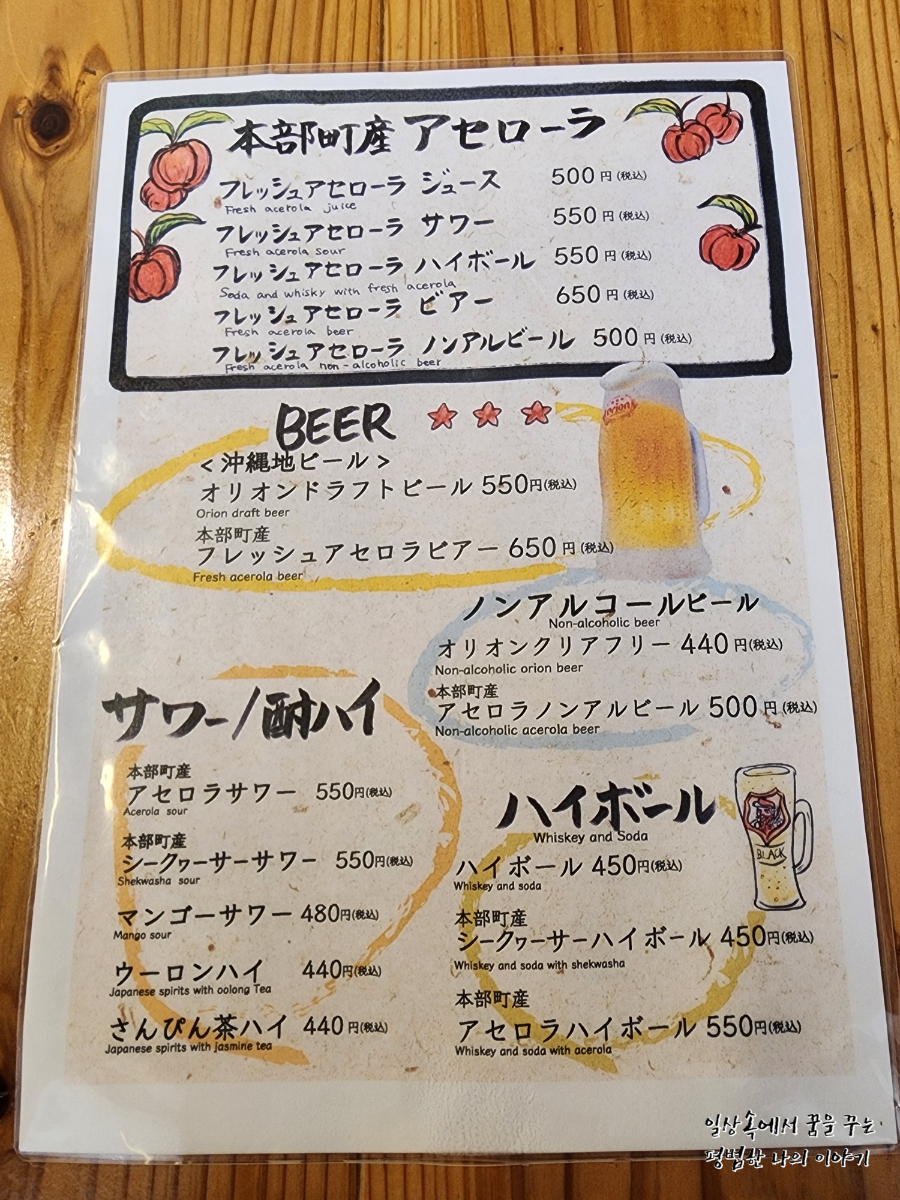 本部町産 アセローラ
フレッシュアセローラ ジュース 500円(税込)
Fresh acerola juice
フレッシュアセローラ サワー 550円(税込)
Fresh acerola sour
フレッシュアセローラ ハイボール 550円(税込)
Soda and whisky with fresh acerola
フレッシュアセローラ ビアー 650円(税込)
Fresh acerola beer
フレッシュアセローラ ノンアルビール 500円(税込)
Fresh acerola non-alcoholic beer
BEER
Orion
<沖縄地ビール>
オリオンドラフトビール 550円(税込)
Orion draft beer
本部町産
フレッシュアセロラビアー 650円(税込)
Fresh acerola beer
ノンアルコールビール
Non-alcoholic beer
オリオンクリアフリー 440円(税込)
Non-alcoholic orion beer
本部町産
アセロラノンアルビール 500円(税込)
Non-alcoholic acerola beer
サワー/酎ハイ
本部町産
アセロラサワー 550円(税込)
Acerola sour
本部町産
シークヮーサーサワー 550円(税込)
Shekwasha sour
マンゴーサワー 480円(税込)
Mango sour
ウーロンハイ 440円(税込)
Japanese spirits with oolong Tea
さんぴん茶ハイ 440円(税込)
Japanese spirits with jasmine tea
ハイボール
Whiskey and Soda
BLACK
ハイボール 450円(税込)
Whiskey and soda
本部町産
シークヮーサーハイボール 450円(税込)
Whiskey and soda with shekwasha
本部町産
アセロラハイボール 550円(税込)
Whiskey and soda with acerola
일상속에서 꿈을 꾸는
평범한 나의 이야기